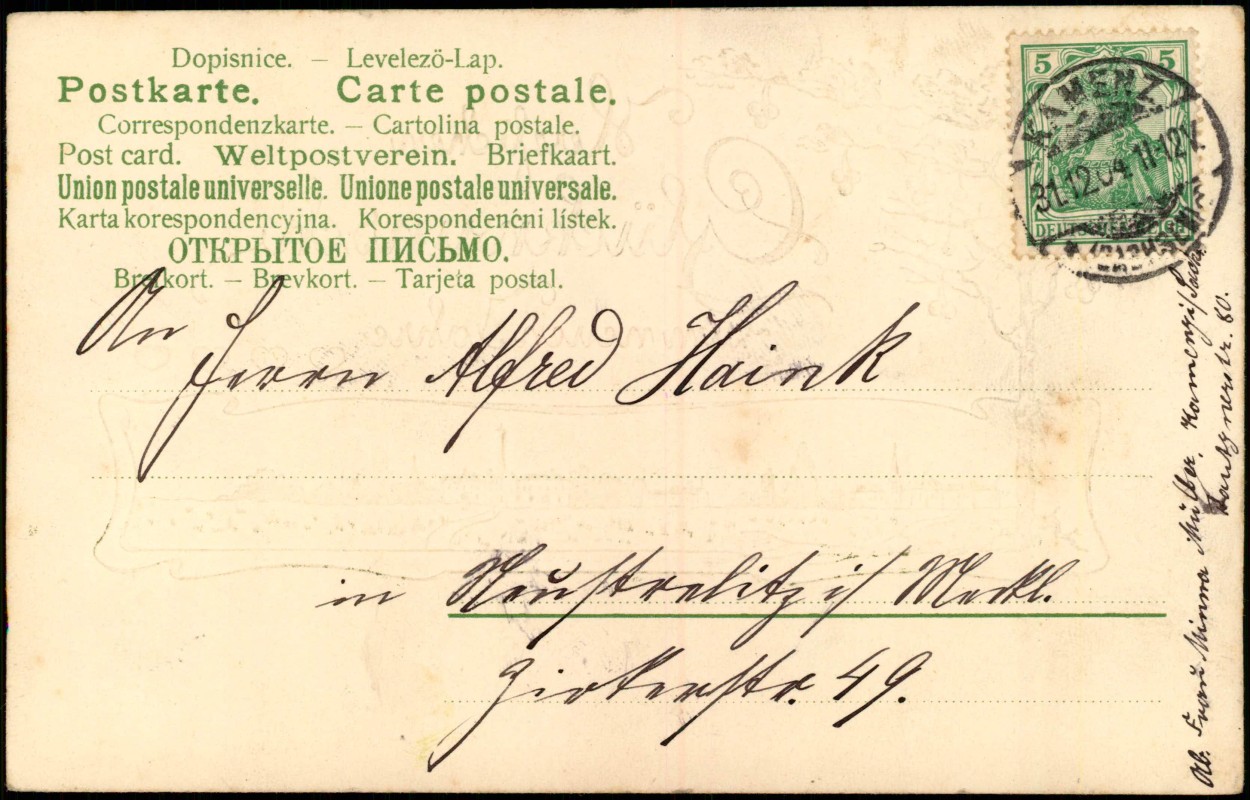 Dopisnice. — Levelezö-Lap.
Postkarte. Carte postale.
Correspondenzkarte. — Cartolina postale.
Post card. Weltpostverein. Briefkaart.
Union postale universelle. Unione postale universale.
Karta korespondencyjna. Korespondenćni lístek.
ОТКРЫТОЕ ПИСЬМО.
Brefkort. — Brevkort. — Tarjeta postal.
5 5
DEUTSCHES REICH
KAMENZ
31.12.04 11-12V.
* (SACHSEN) *
An
Herrn Alfred Haink
in Neustrelitz i/ Meckl.
Zierkerstr. 49.
Ab. Frau Minna Müller. Kamenz i/Sachs.